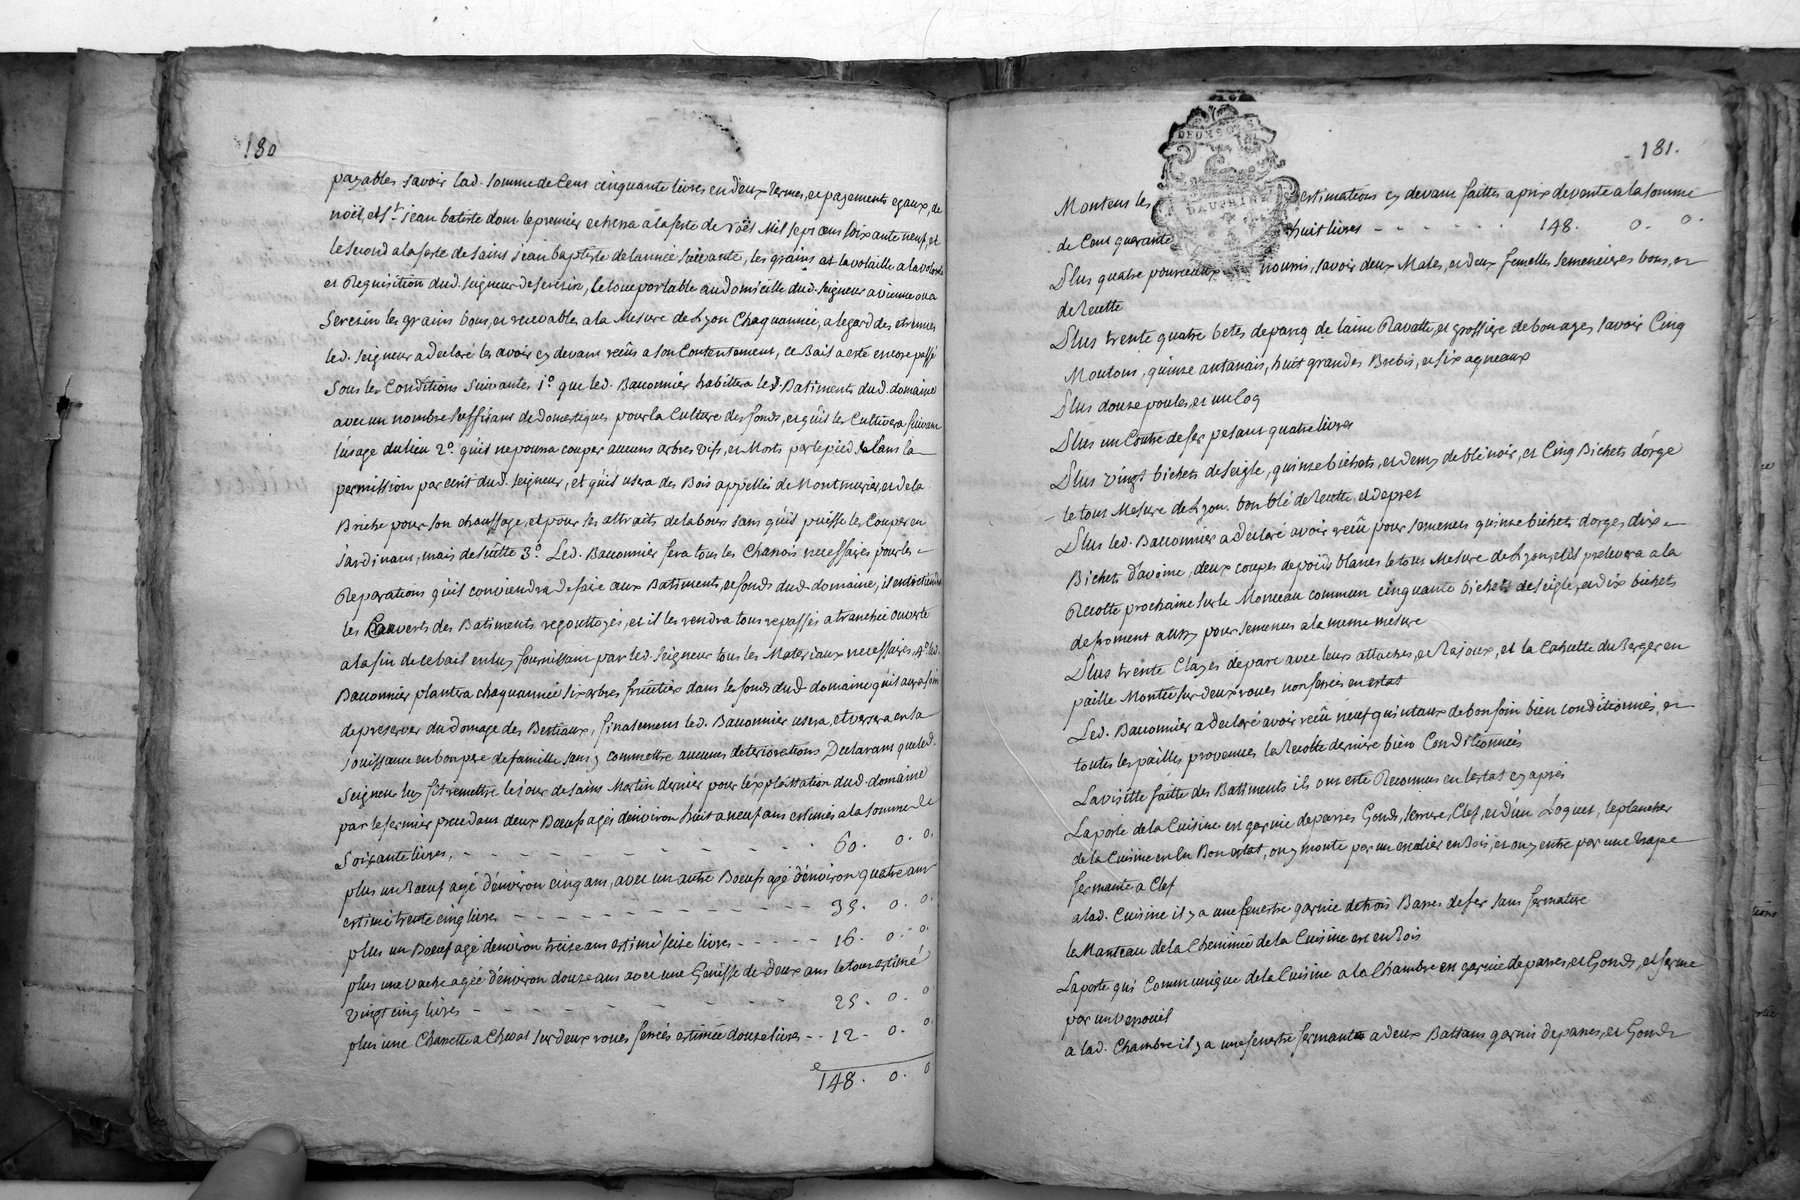 180
payables savoir lad. somme de Cent cinquante livres en deux termes, et payements egaux, de
noël et St. jean batiste dont le premier echerra a la feste de noël Mil sept cens soixante neuf, et
le second a la feste de saint jean baptiste de lannée suivante, les grains et la volaille a la volonté
et Requisition dud. seigneur de serezin, le tout portable au domicille dud. seigneur a vienne ou a
serezin les grains bons, et recevables a la Mesure de Lyon Chaquannée, a legard des etrennes
led. seigneur a declaré les avoir cy devant reçûs a son Contentement, ce Bail a esté encore passé
sous les Conditions suivantes 1º. que led. Bauonnier habittera led. Batiments dud. domaine
avec un nombre suffisant de domestiques pour la Culture des fonds, et qu'il les Cultivera suivant
l'usage du lieu 2º. qu'il ne pourra couper aucuns arbres vifs, et Morts par le pied sans la
permission par ecrit dud. seigneur, et qu'il usera des Bois appellés de Montmurier, et de la
Briche pour son chauffage, et pour ses attraits de labour sans qu'il puisse les Couper en
jardinant, mais de suitte 3º. Led. Bauonnier fera tous les Charrois necessaires pour les
Reparations qu'il conviendra de faire aux Batiments, et fonds dud. domaine, il entretiendra
les Couverts des Batiments regouttoyés, et il les rendra tous repassés a tranchée ouverte
a la fin de ce bail en luy fournissant par led. seigneur tous les Materiaux necessaires, 4º. led.
Bauonnier plantera chaquannée six arbres fruitiers dans les fonds dud. domaine qu'il aura soin
de preserver du domage des Bestiaux, finalement led. Bauonnier usera, et versera en sa
jouissance en bon pere de famille sans y commettre aucunes deteriorations, Declarant que led.
seigneur luy fit remettre le jour de saint Martin dernier pour l'exploittation dud. domaine
par le fermier precedant deux Bœufs agés d'environ huit a neuf ans estimés a la somme de
soixante livres, - - - - - - - - 60. 0. 0.
plus un Bœuf agé d'environ cinq ans, avec un autre Bœuf agé d'environ quatre ans
estimé trente cinq livres - - - - - - - 35. 0. 0.
plus un Bœuf agé denviron treize ans estimé seize livres - - - - - 16. 0. 0.
plus une vache agée d'environ douze ans avec une Genisse de deux ans le tout estimé
vingt cinq livres - - - - - - - 25. 0. 0.
plus une Charrette a Cheval sur deux roues ferrées estimée douze livres - - 12. 0. 0.
148. 0. 0
181.
DEUX SOLS
DAUPHINE
Montent les estimations cy devant faittes a prix de vente a la somme
de Cent quarante huit livres - - - - - - 148. 0. 0.
Plus quatre pourceaux nourris, savoir deux Males, et deux femelles semencieres bons, et
de Recette
Plus trente quatre betes de parcq de laine Ravatte, et grossiere de bon ages, savoir Cinq
Moutons, quinze antanais, huit grandes Brebis, et six agneaux
Plus douze poules, et un Coq
Plus un Contre de fer pesant quatre livres
Plus vingt bichets de seigle, quinze bichets, et demy de blé noir, et Cinq Bichets d'orge
le tout Mesure de Lyon bon blé de Recette, et de pret
Plus led. Bauonnier a declaré avoir reçû pour semences quinze bichets d'orges, dix
Bichets d'avoine, deux coupes de poids blancs le tout Mesure de Lyon, et il prelevera a la
Recolte prochaine sur le Monceau commun cinquante bichets de seigle, et dix bichets
de froment aussy pour semences a la meme mesure
Plus trente Clayes de parc avec leurs attaches, et Rajoux, et la Cahutte du Berger en
paille Montée sur deux roues non ferrées en estat
Led. Bauonnier a declaré avoir reçû neuf quintaux de bon foin bien conditionnés, et
toutes les pailles provenues la Recolte derniere bien Conditionnées
La visitte faitte des Batiments ils ont esté Reconnus en lestat cy après
La porte de la Cuisine est garnie de parres, Gonds, serrure, Clef, et d'un Loquet, le plancher
de la Cuisine en en Bon estat, on y monte par un escalier en Bois, et on y entre par une trape
fermante a Clef
a lad. Cuisine il y a une fenestre garnie de trois Barres de fer sans fermature
le Manteau de la Cheminée de la Cuisine est en Bois
La porte qui Communique de la Cuisine a la Chambre est garnie de parres, et Gonds, et ferme
par un verrouil
a lad. Chambre il y a une fenestre fermante a deux Battans garnis de parres, et Gonds